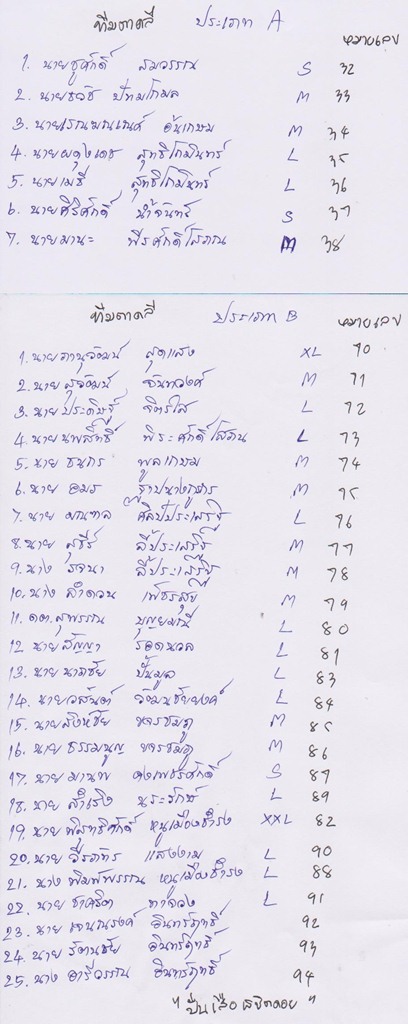 ทีมตาคลี ประเภท A
หมายเลข
1. นายชูศักดิ์ สมวรรณ S 32
2. นายธวัช ปทุมโกมล M 33
3. นาย M 34
4. นายผดุงเดช สุทธิโกมินทร์ L 35
5. นายเมธี สุทธิโกมินทร์ L 36
6. นายศิริศักดิ์ น้ำจันทร์ S 37
7. นายมานะ พีรศักดิ์โสภณ M 38
ทีมตาคลี ประเภท B หมายเลข
1. นายภานุวัฒน์ สุดแสง XL 70
2. นายสุวัฒน์ จันทวงศ์ M 71
3. นายประดิษฐ์ จิตรใส L 72
4. นายนพสิทธิ์ พิระศักดิ์โสภณ L 73
5. นาย ธนกร พูลเกษม M 74
6. นาย อมร M 75
7. นาย L 76
8. นาย สุธีร์ ลี้ประเสริฐ M 77
9. นาง รจนา ลี้ประเสริฐ M 78
10. นาง ลำดวน เพ็ชรสุข M 79
11. ดต.สุพรรณ บุญยมานี L 80
12. นายสัญญา รอดนวล L 81
13. นายนาถชัย ปั้นมูล L 83
14. นายวสันต์ L 84
15. นายสิงห์ชัย M 85
16. นาย ธรรมนูญ M 86
17. นาย มานพ คงเพชรศักดิ์ S 87
18. นาย สำเริง L 89
19. นาย พิสุทธิศักดิ์ หนูเมืองธำรง XXL 82
20. นาย วีรภัทร แสงงาม L 90
21. นาง พิมพ์พรรณ หนูเมืองธำรง L 88
22. นาย ชาคริต L 91
23. นาย เจนณรงค์ อินทร์ฤทธิ์ 92
24. นาย รัตนชัย อินทร์ฤทธิ์ 93
25. นาง อารีวรรณ อินทร์ฤทธิ์ 94
" ปั่น เสือ "